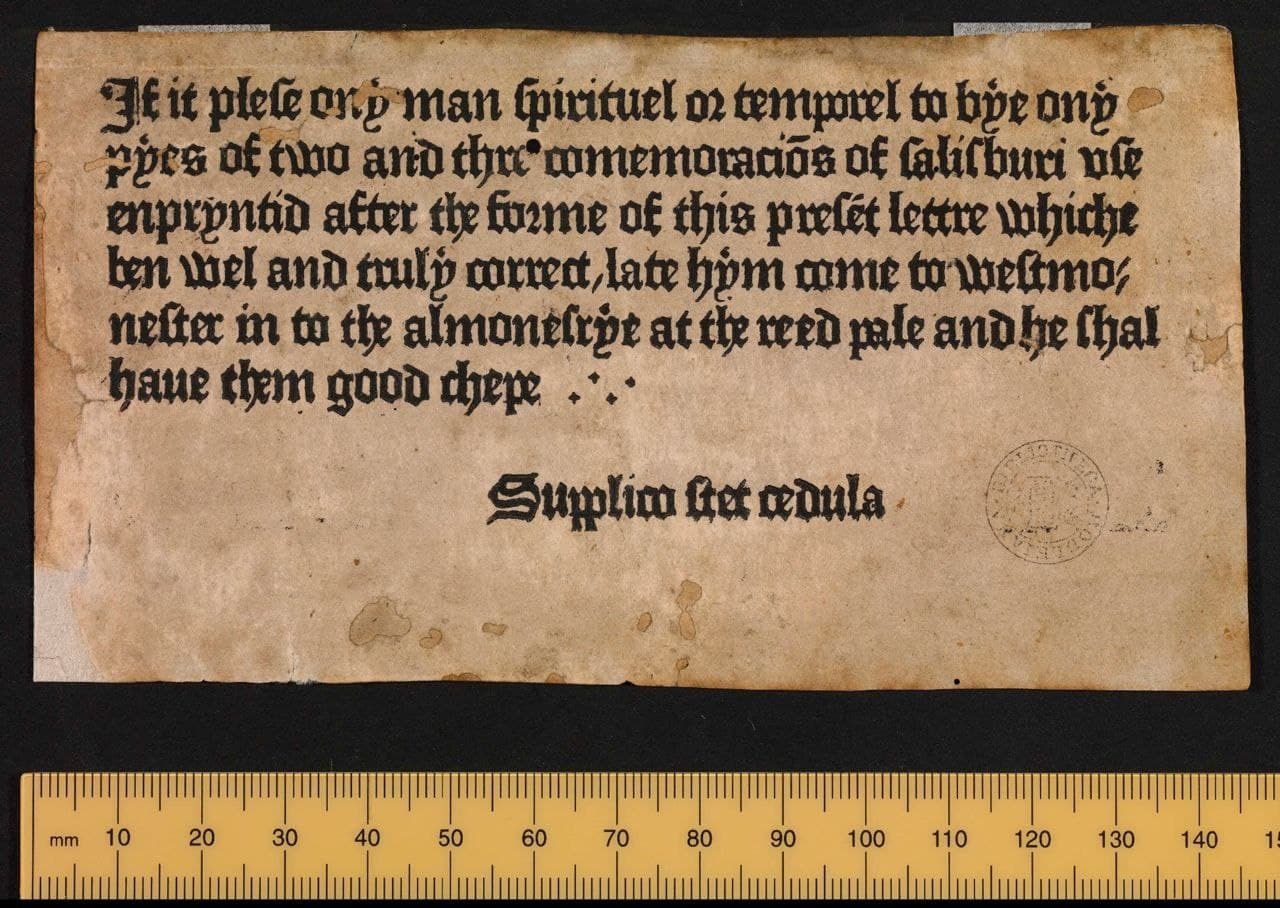 If it pleſe ony man ſpirituel or temporel to bye ony
pyes of two and thre comemoraciōs of ſaliſburi vſe
enpryntid after the forme of this preſēt lettre whiche
ben wel and truly correct, late hym come to weſtmo⸗
neſter in to the almoneſrye at the reed pale and he ſhal
haue them good chepe ∴
Supplico ſtet cedula
BIBLIOTHECA BODLEIANA
mm 10 20 30 40 50 60 70 80 90 100 110 120 130 140